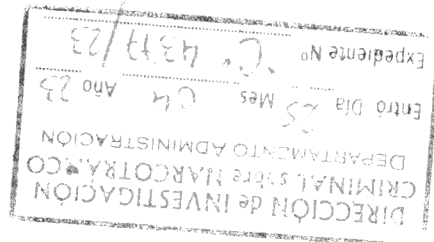 DIRECCIÓN de INVESTIGACIÓN
CRIMINAL sobre NARCOTRÁFICO
DEPARTAMENTO ADMINISTRACIÓN
Entró Día 25 Mes 04 Año 23
Expediente Nº "C" 4317/23